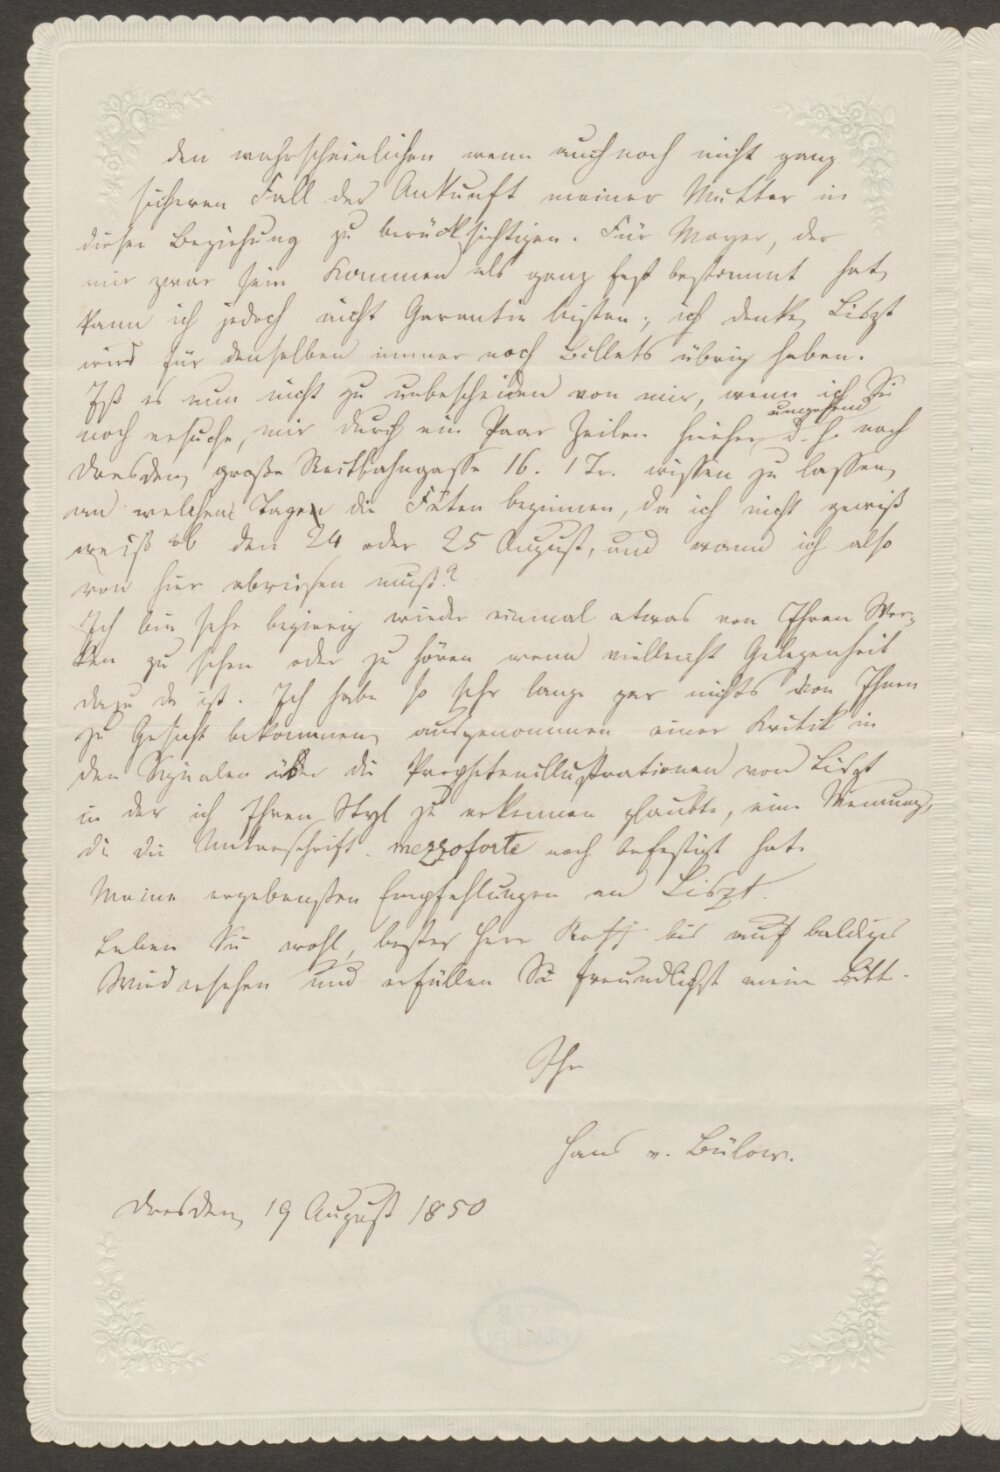 den wahrscheinlichen wenn auch noch nicht ganz
sicheren Fall der Ankunft meiner Mutter in
dieser Beziehung zu berücksichtigen. Für Mayer, der
mir zwar sein Kommen als ganz fest bestimmt hat,
kann ich jedoch nicht Garantie leisten; ich denke, Liszt
wird für denselben immer noch Billets übrig haben.
Ist es nun nicht zu unbescheiden von mir, wenn ich Sie
umgehend
noch ersuche, mir durch ein Paar Zeilen hieher, d. h. nach
Dresden, große Reitbahngasse 16. 1 Tr. wissen zu lassen,
an welchem Tage die Fêten beginnen, da ich nicht gewiß
weiß ob den 24 oder 25 August, und wann ich also
von hier abreisen muß?
Ich bin sehr begierig wieder einmal etwas von Ihren Wer-
ken zu sehen oder zu hören wenn vielleicht Gelegenheit
dazu da ist. Ich habe so sehr lange gar nichts von Ihnen
zu Gesicht bekommen, ausgenommen einer Kritik in
den Signalen über die Prophetenillustrationen von Liszt
in der ich Ihren Styl zu erkennen glaubte, eine Meinung,
die die Unterschrift mezzoforte noch befestigt hat.
Meine ergebensten Empfehlungen an Liszt.
Leben Sie wohl, bester Herr Raff bis auf baldiges
Wiedersehen und erfüllen Sie freundlichst meine Bitte.
Ihr
Hans v. Bülow.
Dresden, 19 August 1850